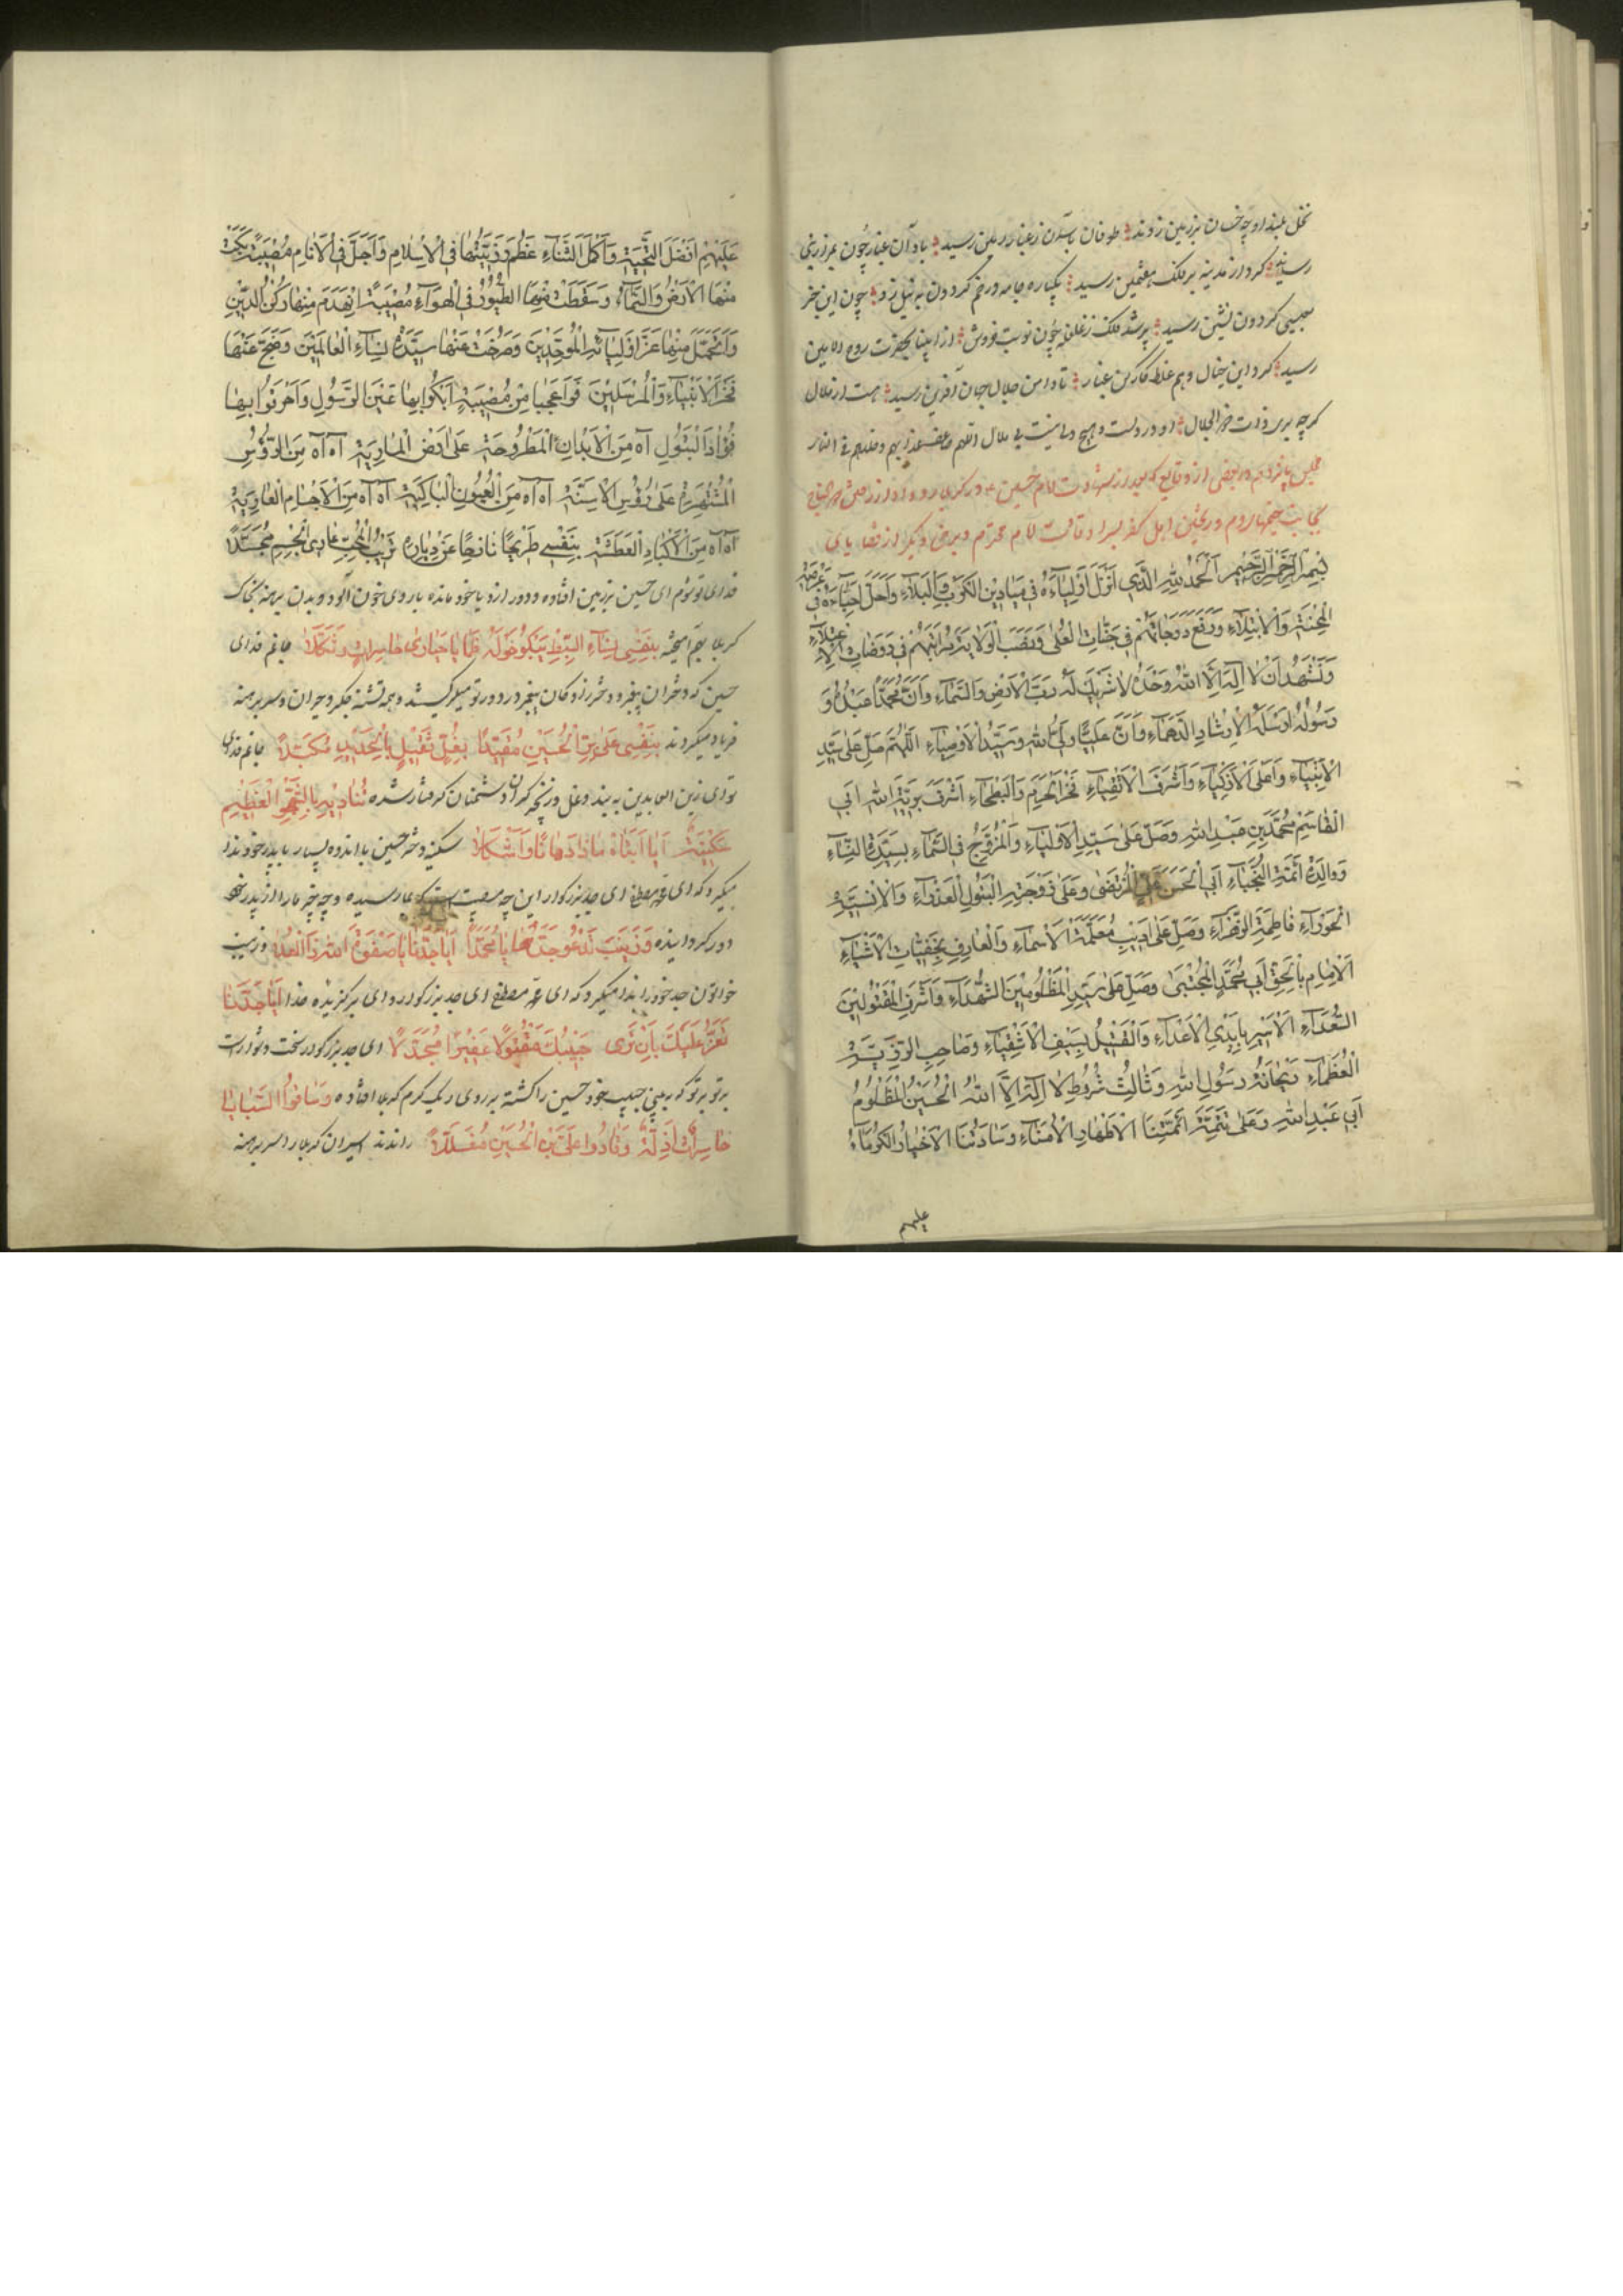 نخل بلند او چو خسان بر زمین زدند طوفان بآسمان ز غبار زمین رسید باد آن غبار چون بمزار نبی
رساند گرد از مدینه بر فلک هفتمین رسید یکباره جامه در خم گردون به نیل زد چون این خبر
بعیسی گردون نشین رسید پر شد فلک ز غلغله چون نوبت خروش از انبیا بحضرت روح الامین
رسید کرد این خیال وهم غلط کار کین غبار تا دامن جلال جهان آفرین رسید هست از ملال
گرچه بری ذات ذوالجلال او در دلست و هیچ دلی نیست بی ملال
مجلس پانزدهم در بعضی از وقایع که بعد از شهادت امام حسین در کربلا رو داد
بجانب خیمها
بِسْمِ اللهِ الرَّحْمٰنِ الرَّحِيْمِ اَلْحَمْدُ لِلّٰهِ الَّذِي اَنْزَلَ اَوْلِيَآءَهُ فِي مَيَادِيْنِ الْكَرْبِ وَالْبَلَآءِ وَاَحَلَّ اَحِبَّآءَهُ فِي
الْمِحْنَةِ وَالْاِبْتِلَآءِ وَرَفَعَ دَرَجَاتِهِمْ فِي جَنَّاتِ الْعُلٰى وَنَصَبَ
وَنَشْهَدُ اَنْ لَا اِلٰهَ اِلَّا اللهُ وَحْدَهُ لَا شَرِيْكَ لَهُ رَبُّ الْاَرْضِ وَالسَّمَآءِ وَاَنَّ مُحَمَّدًا عَبْدُهُ وَ
رَسُوْلُهُ اَرْسَلَهُ لِاِرْشَادِ الدَّهْمَآءِ وَاَنَّ عَلِيًّا وَلِيُّ اللهِ وَسَيِّدُ الْاَوْصِيَآءِ اَللّٰهُمَّ صَلِّ عَلٰى سَيِّدِ
الْاَنْبِيَآءِ وَاَعْلَى الْاَزْكِيَآءِ وَاَشْرَفِ الْاَتْقِيَآءِ فَخْرِ الْحَرَمِ وَالْبَطْحَآءِ اَشْرَفِ بَرِيَّةِ اللهِ اَبِي
الْقَاسِمِ مُحَمَّدِ بْنِ عَبْدِ اللهِ وَصَلِّ عَلٰى سَيِّدِ الْاَوْلِيَآءِ وَالْمُزَوَّجِ فِي السَّمَآءِ بِسَيِّدَةِ النِّسَآءِ
وَوَالِدِ اَئِمَّةِ النُّجَبَآءِ اَبِي الْحَسَنِ عَلِيٍّ الْمُرْتَضٰى وَعَلٰى زَوْجَتِهِ الْبَتُوْلِ الْعَذْرَآءِ وَالْاِنْسِيَّةِ
الْحَوْرَآءِ فَاطِمَةَ الزَّهْرَآءِ وَصَلِّ عَلٰى اَدِيْبِ مُعَلَّمَةِ الْاَسْمَآءِ وَالْعَارِفِ بِخَفِيَّاتِ الْاَشْيَآءِ
اَلْاِمَامِ بِالْحَقِّ اَبِي مُحَمَّدٍ الْمُجْتَبٰى وَصَلِّ عَلٰى سَيِّدِ الْمَظْلُوْمِيْنَ الشُّهَدَآءِ وَاَشْرَفِ الْمَقْتُوْلِيْنَ
السُّعَدَآءِ الْاَسِيْرِ بِاَيْدِي الْاَعْدَآءِ وَالْقَتِيْلِ بِسَيْفِ الْاَشْقِيَآءِ وَصَاحِبِ الرَّزِيَّةِ
الْعُظْمَآءِ رَيْحَانَةِ رَسُوْلِ اللهِ وَثَالِثِ شُرُوْطِ لَا اِلٰهَ اِلَّا اللهُ الْحُسَيْنِ الْمَظْلُوْمِ
اَبِي عَبْدِ اللهِ وَعَلٰى تَتِمَّةِ اَئِمَّتِنَا الْاَطْهَارِ الْاُمَنَآءِ وَسَادَتِنَا الْاَخْيَارِ الْكُرَمَآءِ
علیهم
عَلَيْهِمْ اَفْضَلُ التَّحِيَّةِ وَاَكْمَلُ الثَّنَآءِ عَظُمَ رَزِيَّتُهَا فِي الْاِسْلَامِ وَاَجَلَّ فِي الْاَنَامِ مُصِيْبَةً بَكَتْ
مِنْهَا الْاَرْضُ وَالسَّمَآءُ وَسَقَطَتْ مِنْهَا الطُّيُوْرُ فِي الْهَوَآءِ مُصِيْبَةً اِنْهَدَمَ مِنْهَا رُكْنُ الدِّيْنِ
وَاضْمَحَلَّ مِنْهَا عَزَّ اَوْلِيَآئِهِ الْمُوَحِّدِيْنَ وَصَرَخَتْ عَنْهَا سَيِّدَةُ نِسَآءِ الْعَالَمِيْنَ وَضَجَّ عَنْهَا
فَخْرُ الْاَنْبِيَآءِ وَالْمُرْسَلِيْنَ فَوَاعَجَبَا مِنْ مُصِيْبَةٍ اَبْكَوْا بِهَا عَيْنَ الرَّسُوْلِ وَاَحْرَقُوْا بِهَا
فُؤَادَ الْبَتُوْلِ آه مِنَ الْاَبْدَانِ الْمَطْرُوْحَةِ عَلٰى اَرْضِ الْمَارِيَةِ آه آه مِنَ الرُّؤُسِ
الْمُشْتَهِرَةِ عَلٰى رُؤُسِ الْاَسِنَّةِ آه آه مِنَ الْعُيُوْنِ الْبَاكِيَةِ آه آه مِنَ الْاَجْسَامِ الْعَارِيَةِ
آه آه مِنَ الْاَكْبَادِ الْعَطِشَةِ بِنَفْسِي طَرِيْحًا نَازِحًا عَنْ دِيَارِهِ تَرِيْبُ الْخَدِّ عَارِي الْجِسْمِ مُجَدَّلًا
فدای تو شوم ای حسین بر زمین افتاده و دور از دیار خود مانده با روی خون آلود و بدن برهنه بخاک
کربلا بهم آمیخته بِنَفْسِي نِسَآءُ السِّبْطِ يَبْكُوْنَ حَوْلَهُ حَاسِرَاتٍ وَثُكَّلَا جانم فدای
حسین که دختران پیغمبر و دخترزادکان پیغمبر در دور تو میگریستند و همه تشنه جگر و حیران و سر برهنه
فریاد میکردند بِنَفْسِي عَلِيُّ بْنُ الْحُسَيْنِ مُقَيَّدًا بِغُلٍّ ثَقِيْلٍ بِالْحَدِيْدِ مُكَبَّلًا جانم فدای
تو ای زین العابدین به بند و غل و زنجیر گران دشمنان گرفتار شده
سُكَيْنَةُ اَيَا اَبَتَاهُ مَاذَا دَهَانَا وَاَشْكَلَا سکینه دختر حسین با اندوه بسیار با پدر خود ندا
میکرد که ای پدر بزرکوار این چه مصیبت است که بما رسیده
دور کردانیده وَزَيْنَبُ تَدْعُو جَدَّهَا يَا مُحَمَّدًا اَيَا جَدَّنَا يَا صَفْوَةَ اللهِ ذَا الْعُلَا و زینب
خواتون جد خود را ندا میکرد که ای محمد مصطفی ای جد بزرکوار و ای برکزیده خدا اَيَا جَدَّنَا
يَعِزُّ عَلَيْكَ بِاَنْ تَرٰى حَبِيْبَكَ مَقْتُوْلًا عَفِيْرًا مُجَدَّلًا ای جد بزرکوار سخت و دشوار است
بر تو که به بینی حبیب خود حسین را کشته بر روی ریک گرم کربلا افتاده وَسَاقُوا السَّبَايَا
حَاسِرَاتٍ اَذِلَّةً وَقَادُوا عَلِيَّ بْنَ الْحُسَيْنِ مُغَلَّلًا راندند اسیران کربلا را سر برهنه